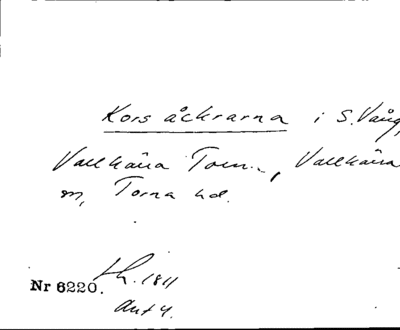 Korsåckrarna i S. Vång,
Vallkärra Torn., Vallkärra
sn, Torna hd.
Nr 6220. Lh. 1811
Akt 4.